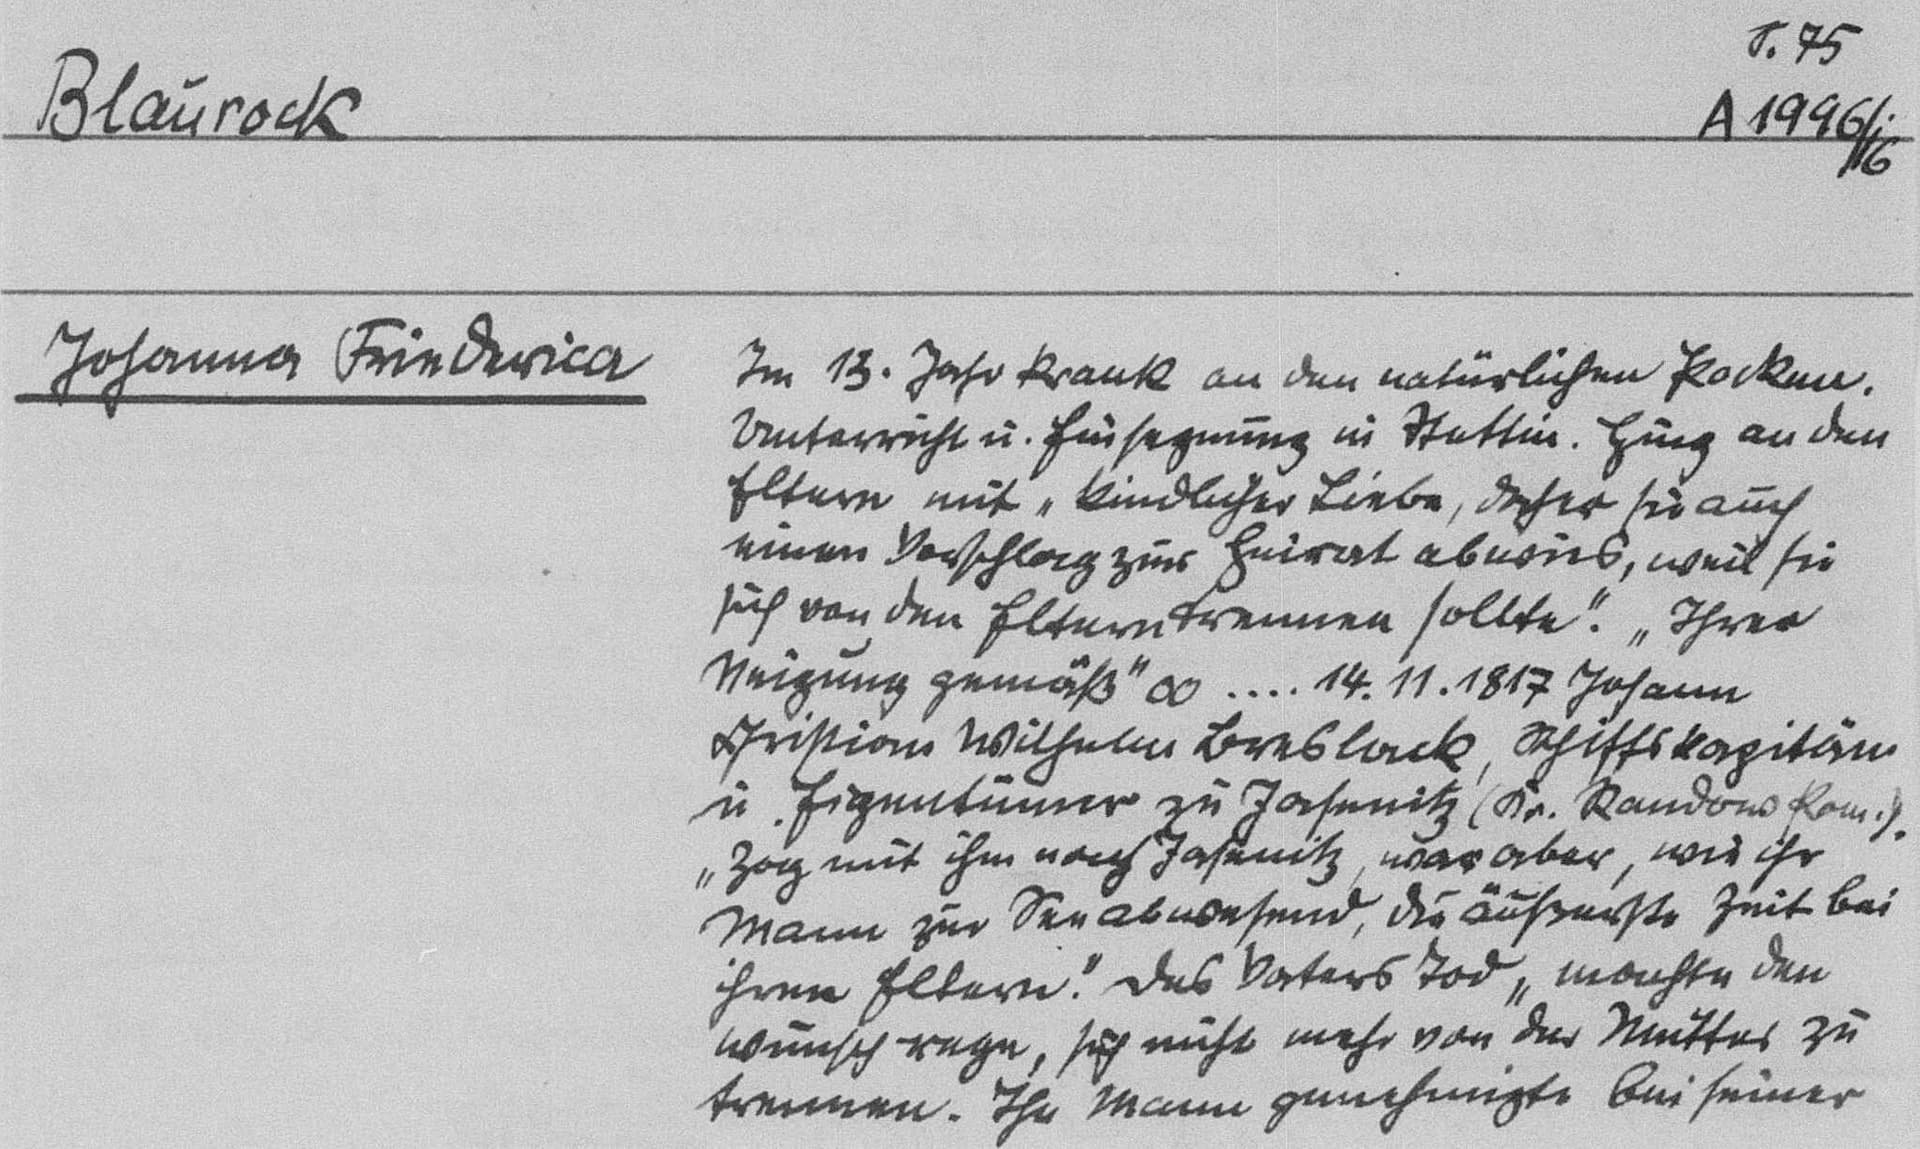 S. 75
Blaurock
A 1996/i
/16
Johanna Friederica
Im 13. Jahr krank an den natürlichen Pocken.
Unterricht u. Einsegnung in Stettin. Hing an den
Eltern mit „kindlicher Liebe, daher sie auch
einen Vorschlag zur Heirat abwies, weil sie
sich von den Eltern trennen sollte". „Ihrer
Neigung gemäß" ∞ .... 14. 11. 1817 Johann
Christian Wilhelm Breslack, Schiffskapitän
u. Eigentümer zu Jasenitz (Kr. Randow Pom.).
„Zog mit ihm nach Jasenitz, war aber, wie ihr
Mann zur See abwesend, die äußerste Zeit bei
ihren Eltern". Des Vaters Tod „machte den
Wunsch rege, sich nicht mehr von der Mutter zu
trennen. Ihr Mann genehmigte bei seiner